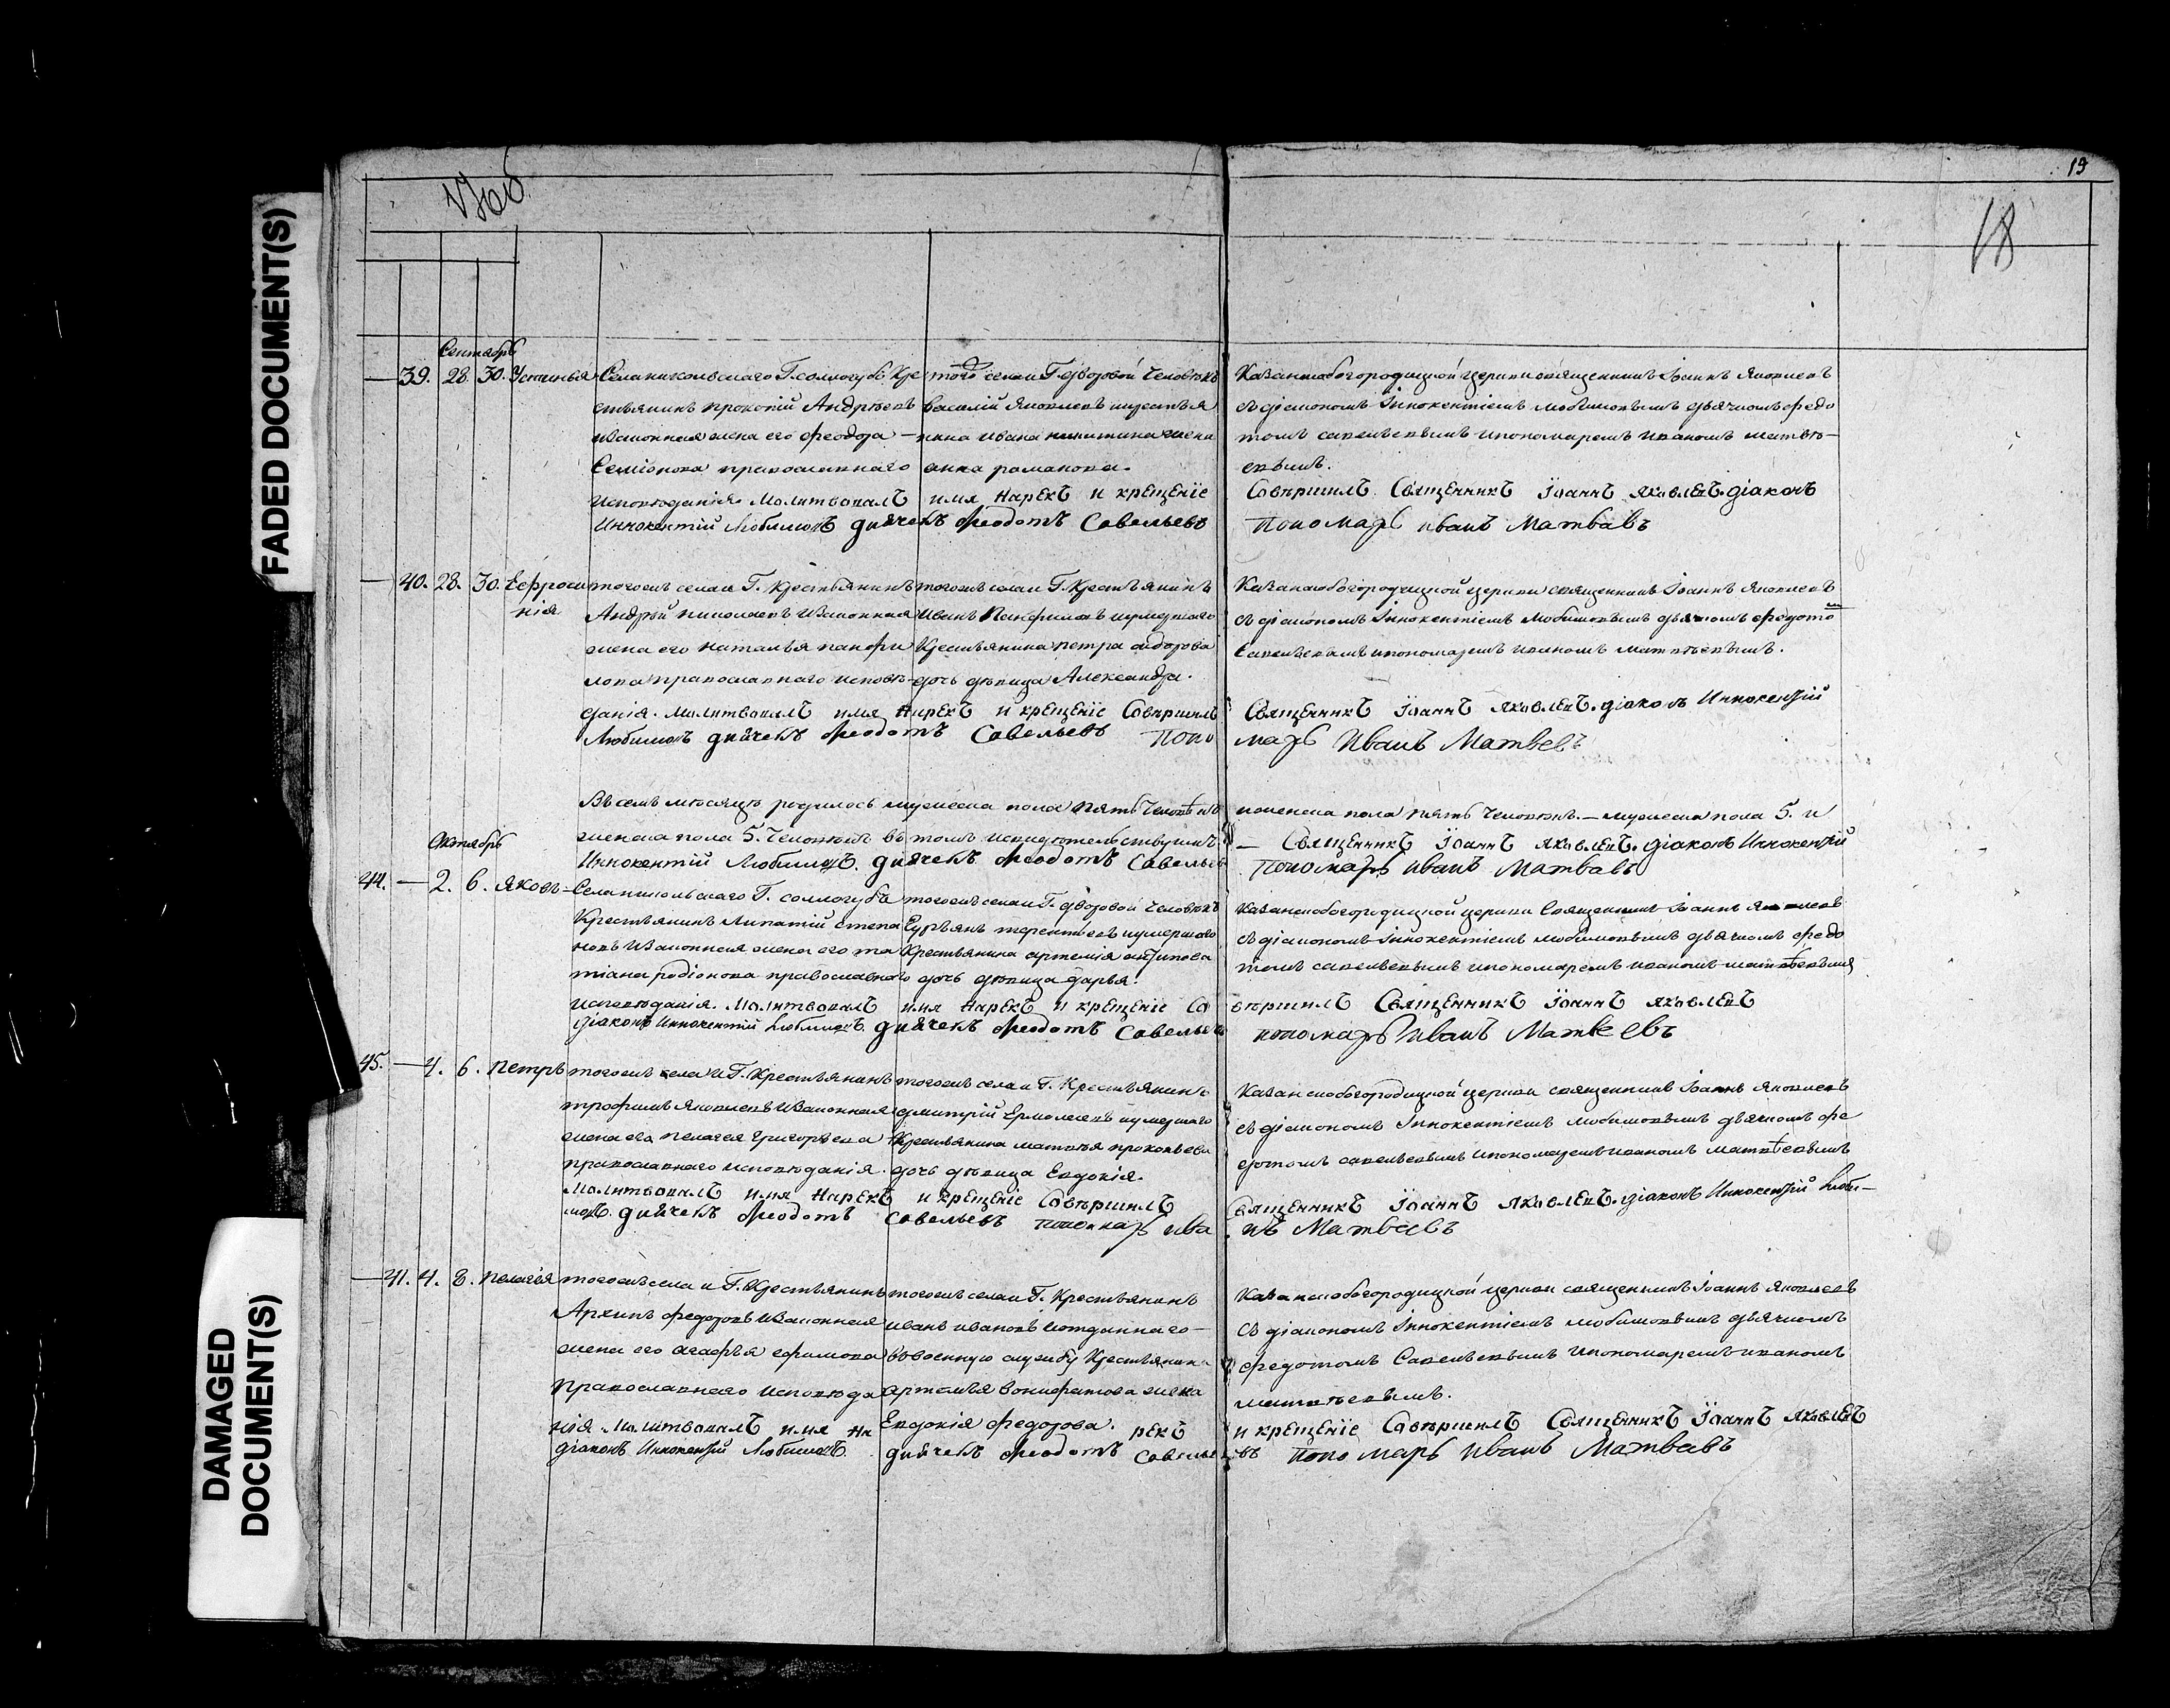 19
18
FADED DOCUMENT(S)
Сентябрь
39. 28. 30. Устинья
Села никольскаго Г. соллогубъ Кре
стьянинъ прокопій Андрѣевъ
изаконная жена его феодора —
Семіонова православнаго
исповѣданія. Молитвовалъ имя Нарекъ и крещеніе
Иннокентій Любимовъ дьячекъ Ѳеодотъ Савельевъ
того села и Г. дворовой человѣкъ
василій Яковлевъ икрестья
нина ивана никитина жена
анна романова.
Казанскобогородицкой церкви священникъ Іоаннъ Яковлевъ
съ діакономъ Іннокентіемъ любимовымъ дьячкомъ федо
томъ савельевымъ ипономаремъ иваномъ матвѣ—
евымъ.
Совершилъ Священникъ Іоаннъ Яковлевъ. діаконъ
Пономарь иванъ Матвѣвъ
40. 28. 30. Ефроси
нія
тогожъ села и Г. крестьянинъ
Андрей николаевъ изаконная
жена его наталья панфи
лова православнаго исповѣ—
данія. Молитвовалъ имя Нарекъ и крещеніе Совершилъ
Любимовъ дьячекъ Ѳеодотъ Савельевъ Поно
тогожъ села и Г. крестьянинъ
Иванъ Панфиловъ иумершаго
Крестьянина петра сидорова
дочь дѣвица Александра.
Казанскобогородицкой церкви священникъ Іоаннъ Яковлевъ
съ діакономъ Іннокентіемъ Любимовымъ дьячкомъ федото
Савельевымъ ипономаремъ иваномъ матвѣевымъ.
Священникъ Іоаннъ Яковлевъ. діаконъ Иннокентій
марь Иванъ Матвевъ
Въ семъ мѣсяцѣ родилось мужеска пола пять человѣкъ
женска пола 5. человѣкъ въ томъ исвидѣтельствуемъ
Иннокентій Любимовъ. дьячекъ Ѳеодотъ Савельев
иженска пола пять человѣкъ. — мужеска пола 5. и
— Священникъ Іоаннъ Яковлевъ. діаконъ Иннокентій
Пономарь иванъ Матвѣвъ
Октябрь
44. — 2. 6. Яковъ —
Села никольскаго Г. соллогубъ
Крестьянинъ Ипатій степа
новъ изаконная жена его та
тіана родіонова православнаго
исповѣданія. Молитвовалъ имя Нарекъ и крещеніе Со
діаконъ Иннокентій Любимовъ. дьячекъ Ѳеодотъ Савельевъ
тогожъ села и Г. дворовой человѣкъ
Гурьянъ терентьевъ иумершаго
Крестьянина артемія антипова
дочь дѣвица дарья.
Казанскобогородицкой церкви Священникъ Іоаннъ Яковлевъ
съ діакономъ Іннокентіемъ любимовымъ дьячкомъ федо
томъ савельевымъ ипономаремъ иваномъ матвѣевымъ
вершилъ Священникъ Іоаннъ Яковлевъ
пономарь Иванъ Матвеевъ
45. — 4. 6. Петръ
тогожъ села и Г. Крестьянинъ
трофимъ Яковлевъ изаконная
жена его пелагея григорьева
православнаго исповѣданія.
Молитвовалъ имя Нарекъ и крещеніе Совершилъ
мовъ. дьячекъ Ѳеодотъ Савельевъ пономарь ива
тогожъ села и Г. Крестьянинъ
дмитрій Ермолаевъ иумершаго
Крестьянина матвѣя прокопьева
дочь дѣвица Евдокія.
Казанскобогородицкой церкви священникъ Іоаннъ Яковлевъ
съ діакономъ Іннокентіемъ любимовымъ дьячкомъ фе
дотомъ савельевымъ ипономаремъ иваномъ матвѣевымъ
Священникъ Іоаннъ Яковлевъ. діаконъ Иннокентій Люби—
нъ Матвѣевъ
DAMAGED
DOCUMENT(S)
— 41. 4. 8. Пелагея
тогожъ села и Г. Крестьянинъ
Архипъ федоровъ изаконная
жена его агафья ефимова
православнаго исповѣда
нія. Молитвовалъ имя На
діаконъ Иннокентій Любимовъ.
тогожъ села и Г. Крестьянинъ
иванъ ивановъ иотданнаго —
ввоенную службу Крестьянина
артемья вонифатова жена
Евдокія федорова. рекъ
дьячекъ Ѳеодотъ Савелье
Казанскобогородицкой церкви священникъ Іоаннъ Яковлевъ
съ діакономъ Іннокентіемъ любимовымъ дьячкомъ
федотомъ Савельевымъ ипономаремъ иваномъ
матвѣевымъ.
и крещеніе Совершилъ Священникъ Іоаннъ Яковлевъ
въ Пономарь Иванъ Матвѣвъ